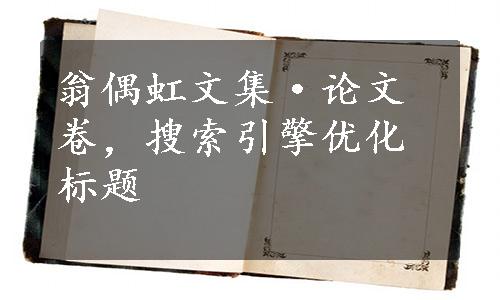 翁偶虹文集·论文
卷，搜索引擎优化
标题